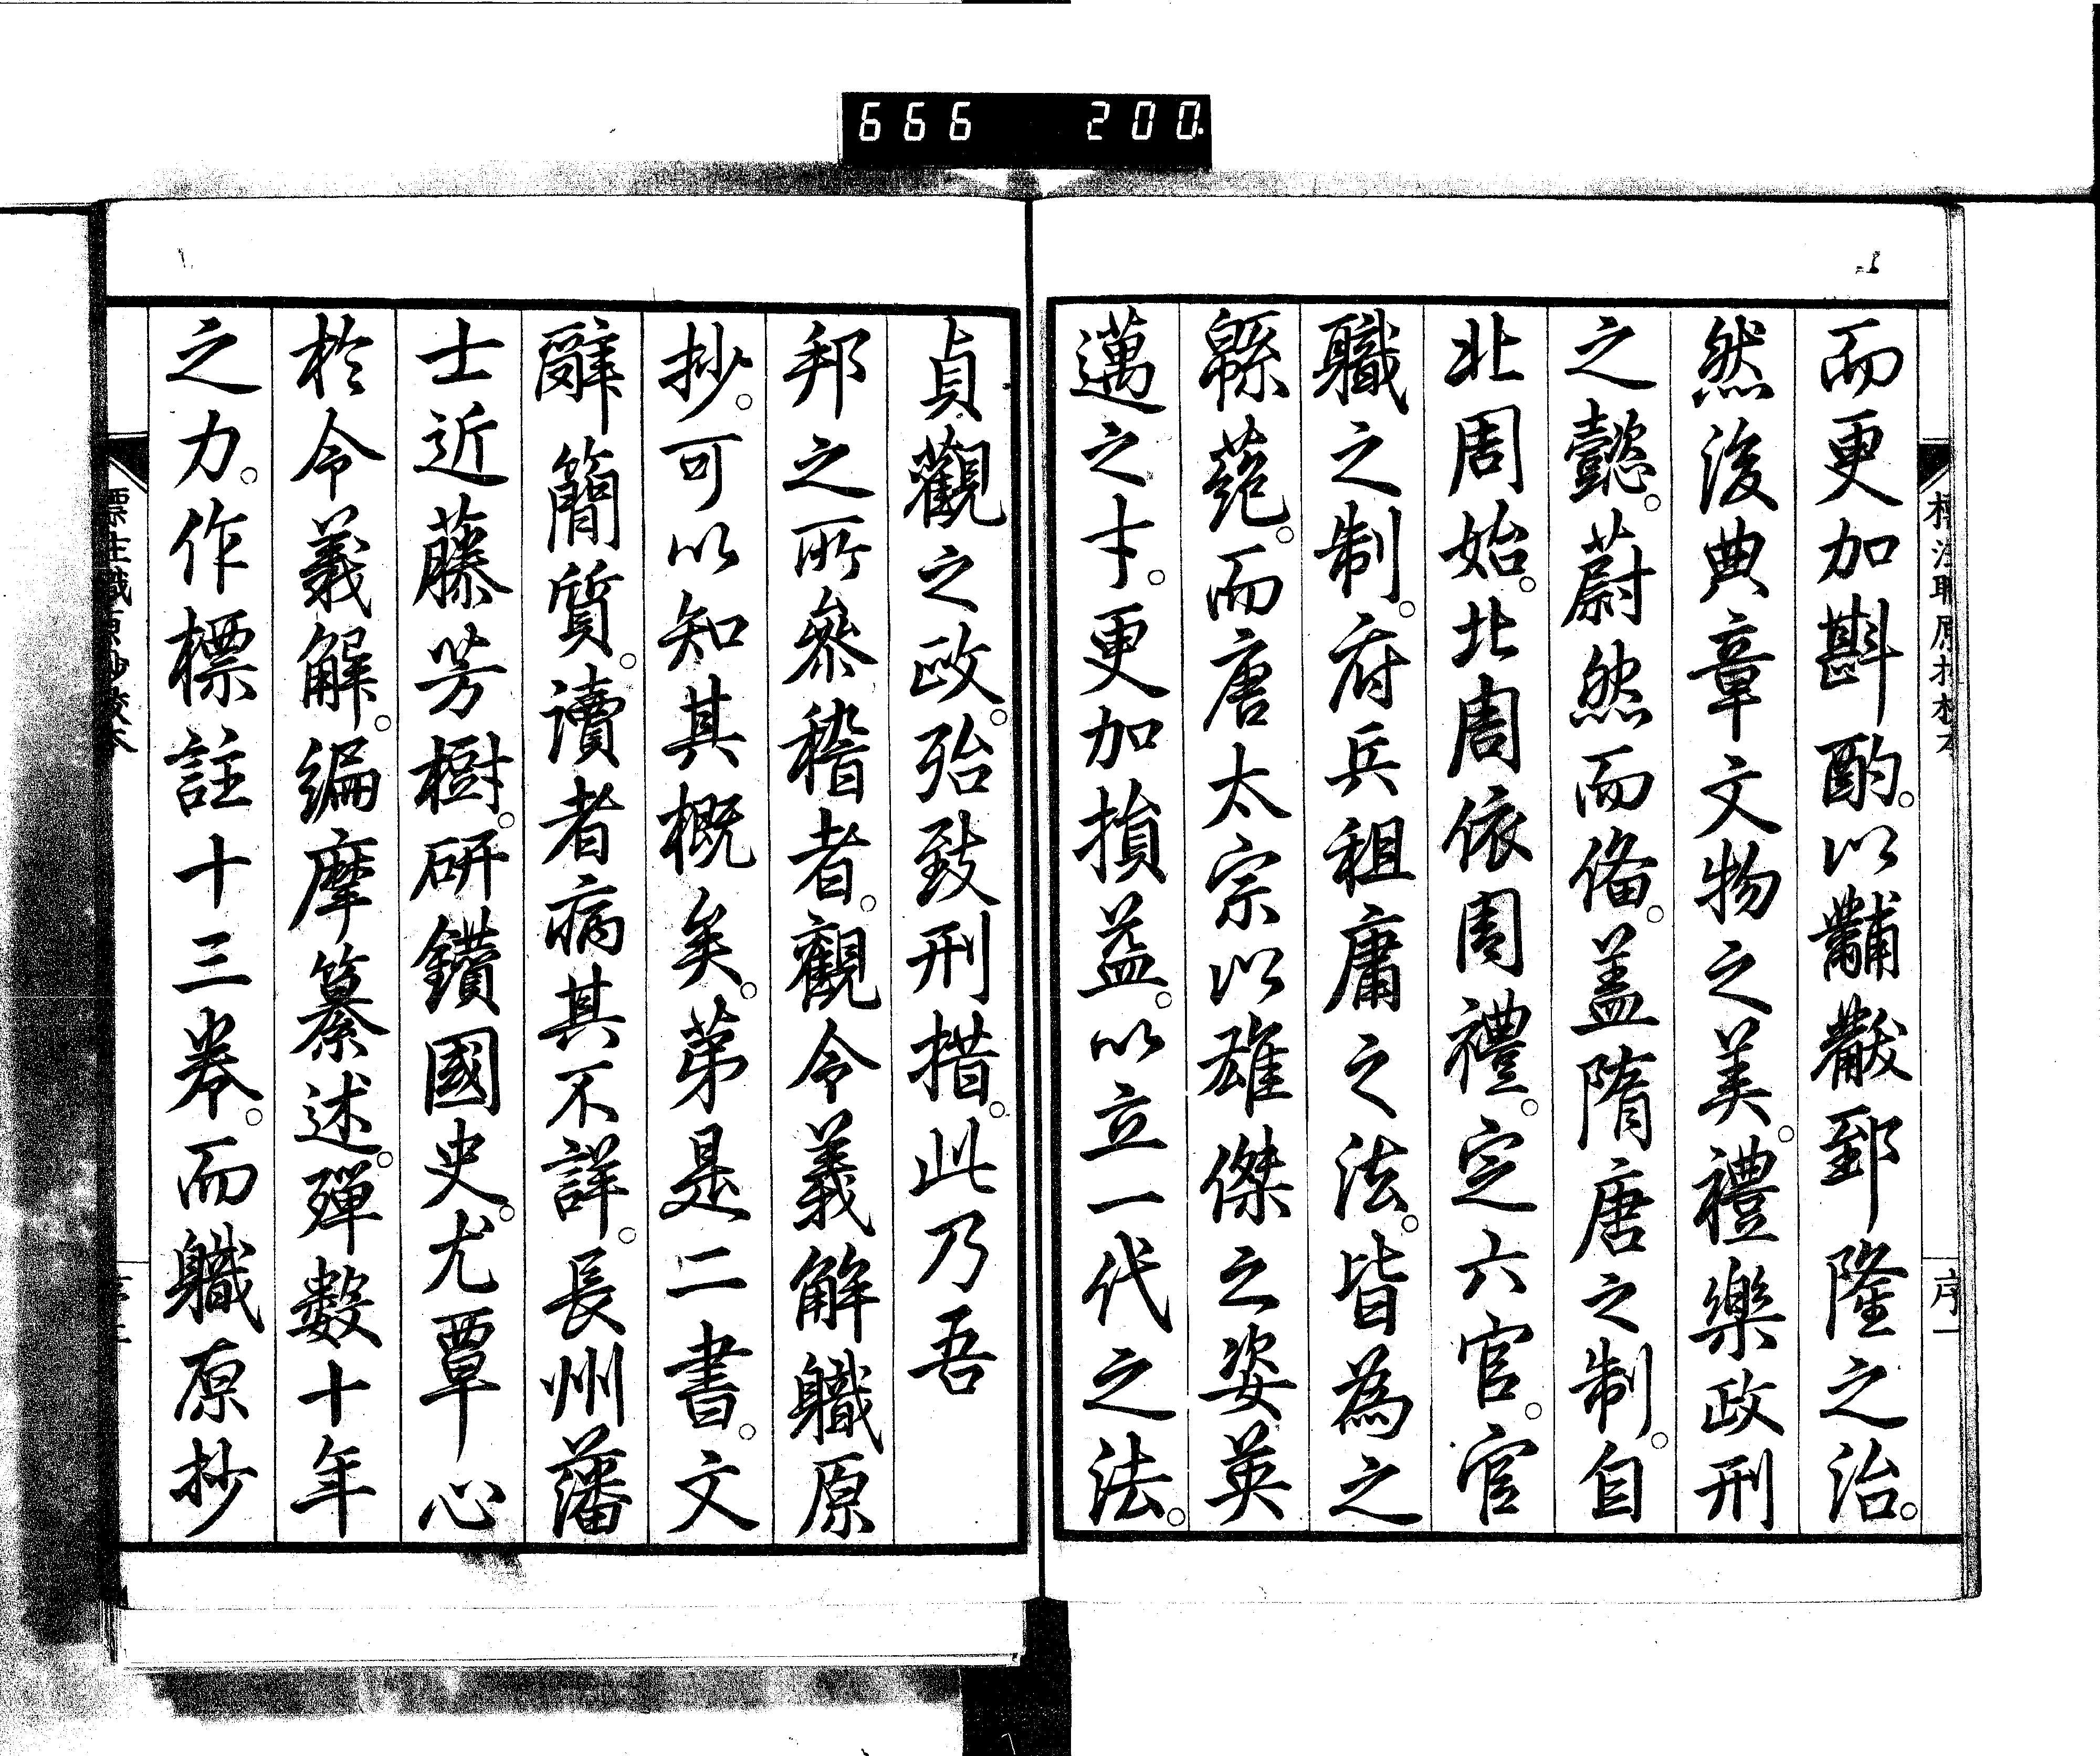 666 200.
標注職原抄校本
序一
而更加斟酌。以黼黻郅隆之治。
然後典章文物之美。禮樂政刑
之懿。蔚然而備。蓋隋唐之制。自
北周始。北周依周禮。定六官。官
職之制。府兵租庸之法。皆為之
緜蕝。而唐太宗以雄傑之姿英
邁之才。更加損益。以立一代之法。
貞觀之政。殆致刑措。此乃吾
邦之所參稽者。觀令義解職原
抄。可以知其概矣。苐是二書。文
辭簡質。讀者病其不詳。長州藩
士近藤芳樹。研鑽國史。尤覃心
於令義解。編摩纂述。殫數十年
之力。作標註十三卷。而職原抄
標注職原抄校本